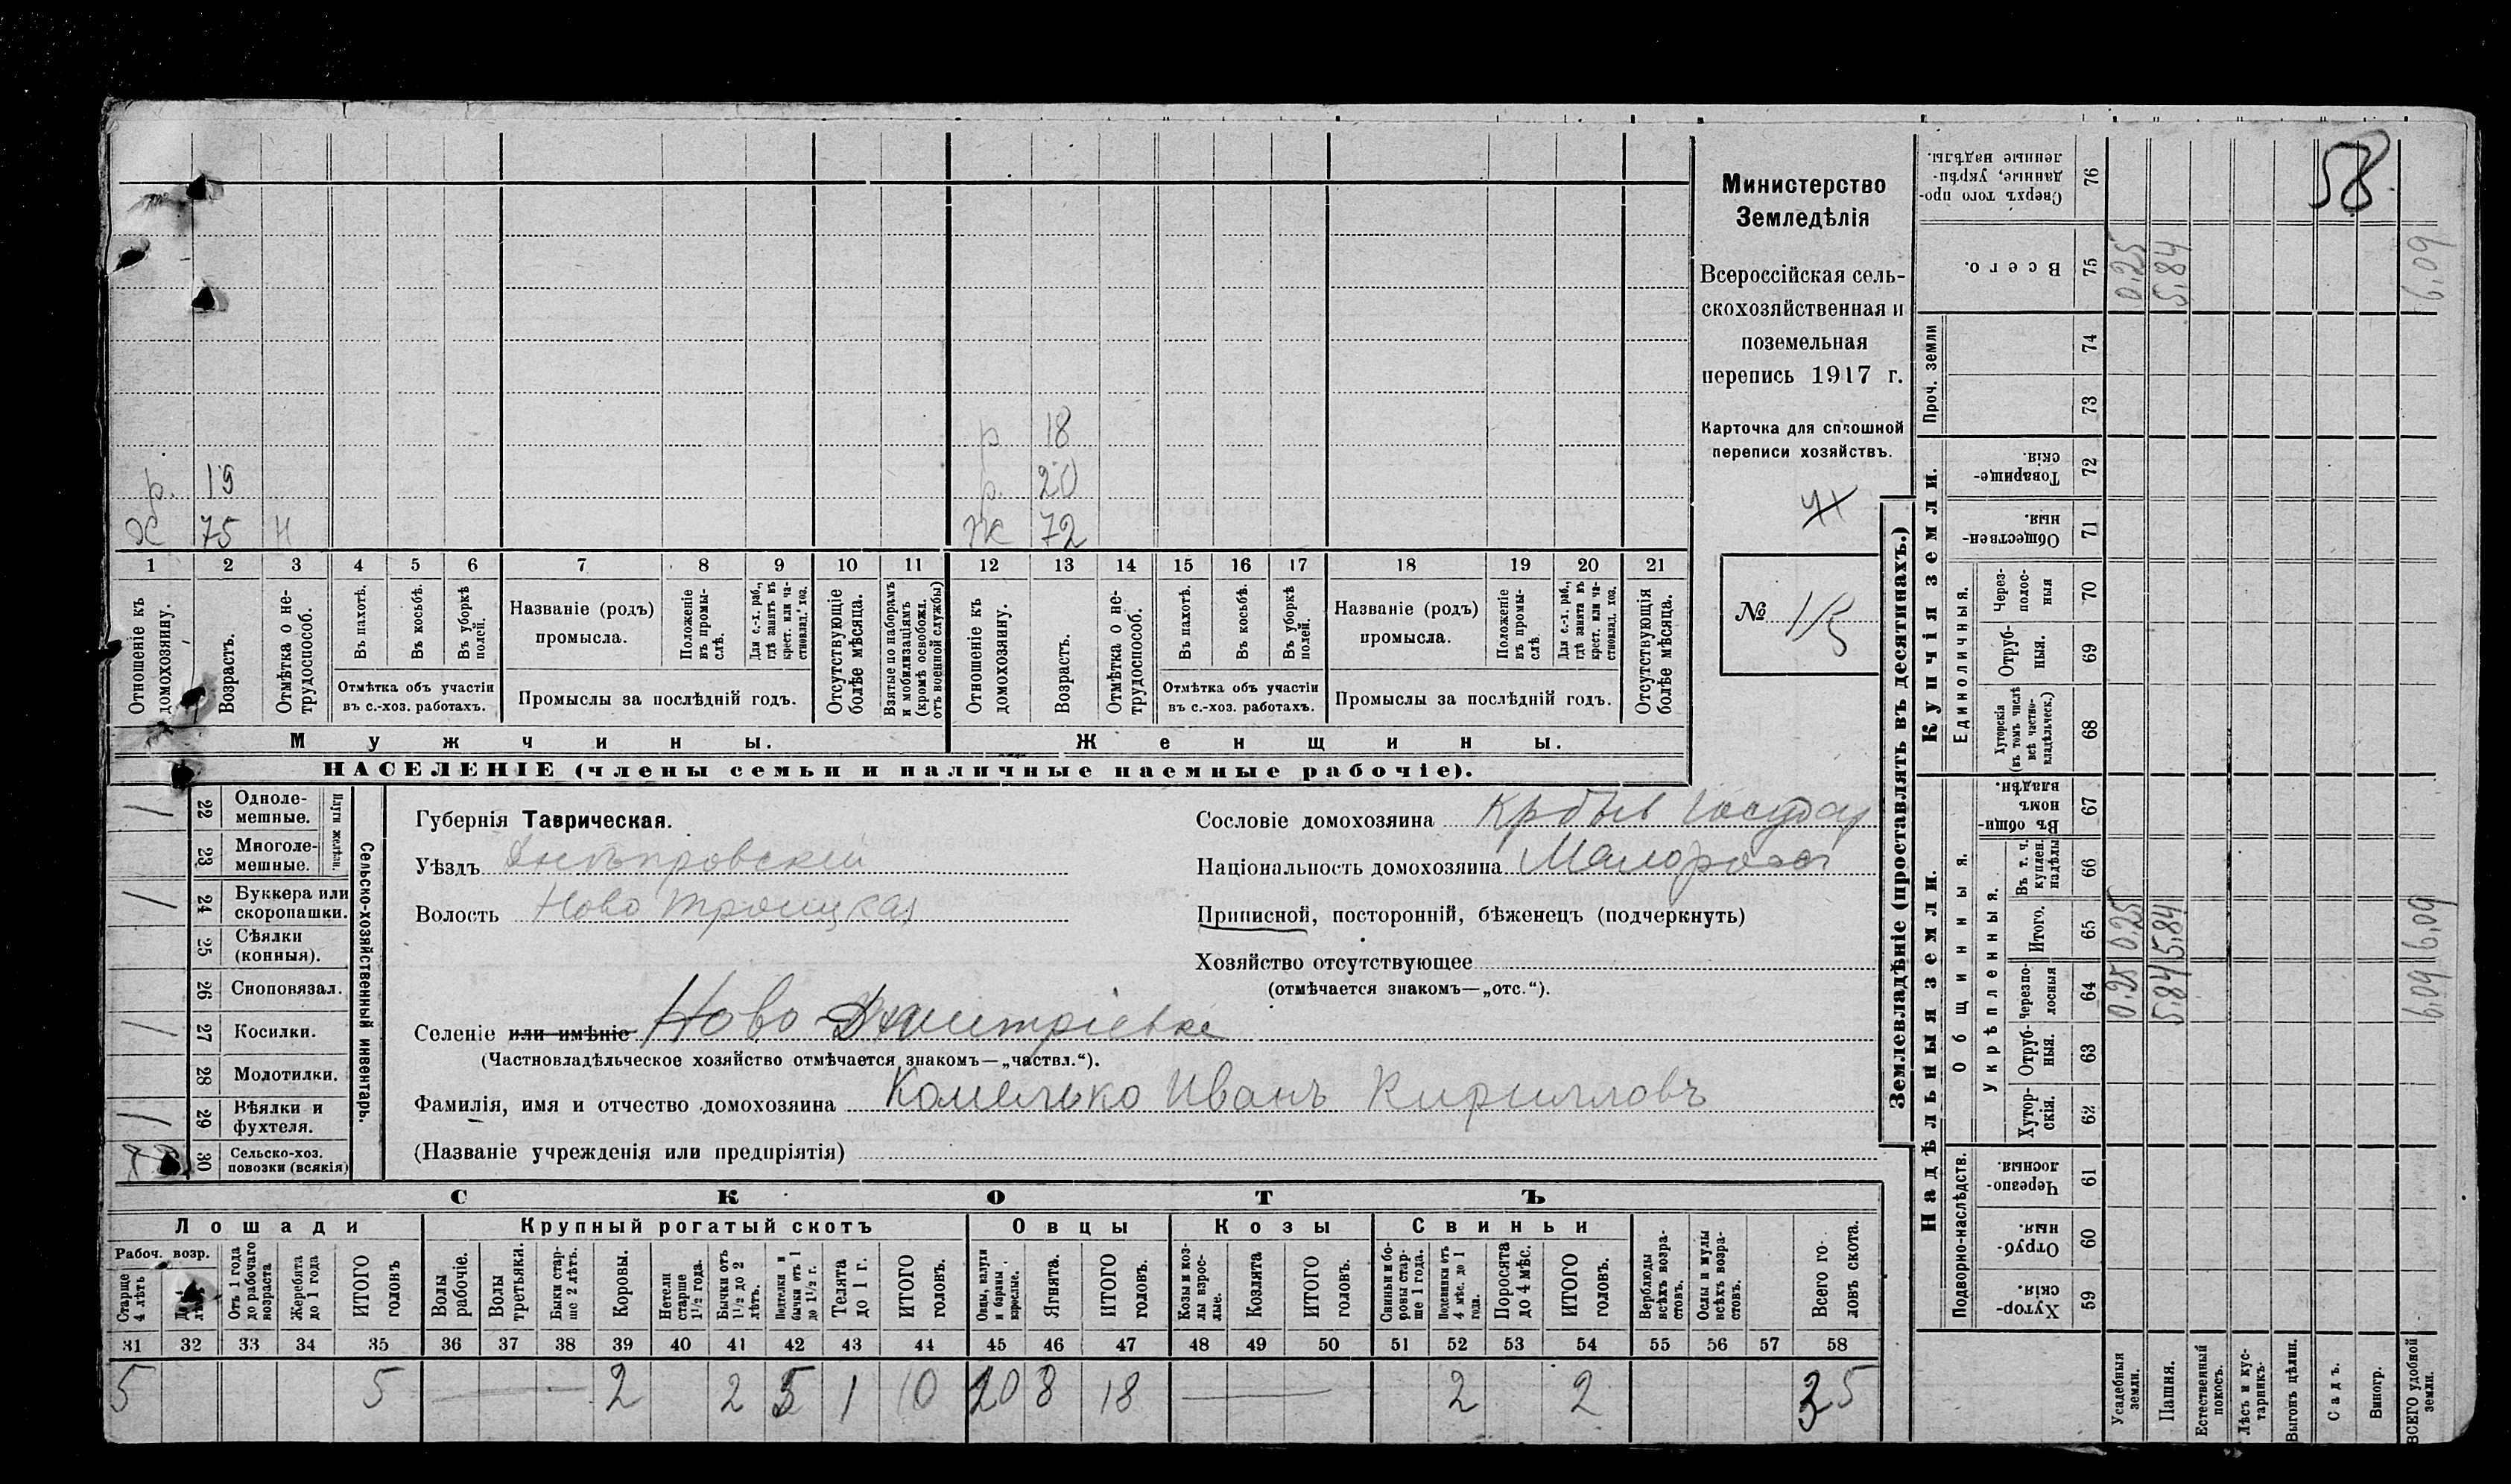 58
р 18
р. 19
р. 20
Х 75 Н
Ж 72
1 2 3 4 5 6 7 8 9 10 11 12 13 14 15 16 17 18 19 20 21
Отношеніе къ домохозяину.
Возрастъ.
Отмѣтка о не-трудоспособ.
Въ пахотѣ.
Въ косьбѣ.
Въ уборкѣ полей.
Отмѣтка объ участіи
въ с.-хоз. работахъ.
Названіе (родъ)
промысла.
Положеніе въ промы-слѣ.
Для с.-х. раб., гдѣ занятъ въ крест. или ча-стновлад. хоз.
Промыслы за послѣдній годъ.
Отсутствующіе болѣе мѣсяца.
Взятые по наборамъ и мобилизаціямъ (кромѣ освобожд. отъ военной службы)
Отношеніе къ домохозяину.
Возрастъ.
Отмѣтка о не-трудоспособ.
Въ пахотѣ.
Въ косьбѣ.
Въ уборкѣ полей.
Отмѣтка объ участіи
въ с.-хоз. работахъ.
Названіе (родъ)
промысла.
Положеніе въ промы-слѣ.
Для с.-х. раб., гдѣ занята въ крест. или ча-стновлад. хоз.
Промыслы за послѣдній годъ.
Отсутствующія болѣе мѣсяца.
Мужчины.
Женщины.
НАСЕЛЕНІЕ (члены семьи и наличные наемные рабочіе).
Министерство
Земледѣлія
Всероссійская сель-
скохозяйственная и
поземельная
перепись 1917 г.
Карточка для сплошной
переписи хозяйствъ.
№ 15
Сельско-хозяйственный инвентарь.
Плуги желѣзн.
22 Одноле-мешные.
23 Многоле-мешные.
24 Буккера или скоропашки.
25 Сѣялки (конныя).
26 Сноповязал.
27 Косилки.
28 Молотилки.
29 Вѣялки и фухтеля.
30 Сельско-хоз. повозки (всякія)
Губернія Таврическая.
Уѣздъ Днѣпровскій
Волость Ново Троицкая
Сословіе домохозяина Крбыв Государ
Національность домохозяина Малоросс
Приписной, посторонній, бѣженецъ (подчеркнуть)
Хозяйство отсутствующее
(отмѣчается знакомъ—„отс.“).
Селеніе или имѣніе Ново Дмитріевка
(Частновладѣльческое хозяйство отмѣчается знакомъ—„частвл.“).
Фамилія, имя и отчество домохозяина Комелько Иванъ Кирилловъ
(Названіе учрежденія или предпріятія)
СКОТЪ
Лошади
Крупный рогатый скотъ
Овцы
Козы
Свиньи
Рабоч. возр.
Старше 4 лѣтъ
Отъ 1 года до рабочаго возраста
Жеребята до 1 года
ИТОГО головъ
Волы рабочіе.
Волы третьяки.
Быки стар-ше 2 лѣтъ.
Коровы.
Нетели старше 1½ года.
Бычки отъ 1½ до 2 лѣтъ.
Подтелки и бычки отъ 1 до 1½ г.
Телята до 1 г.
ИТОГО головъ.
Овцы, валухи и бараны взрослые.
Ягнята.
ИТОГО головъ.
Козы и коз-лы взрос-лые.
Козлята
ИТОГО головъ.
Свиньи и бо-ровы стар-ше 1 года.
Подсвинки отъ 4 мѣс. до 1 года.
Поросята до 4 мѣс.
ИТОГО головъ.
Верблюды всѣхъ возра-стовъ.
Ослы и мулы всѣхъ возра-стовъ.
Всего го-ловъ скота.
31 32 33 34 35 36 37 38 39 40 41 42 43 44 45 46 47 48 49 50 51 52 53 54 55 56 57 58
5 5 — 2 2 5 1 10 10 8 18 — 2 2 35
Землевладѣніе (проставлять въ десятинахъ.)
Надѣльныя земли.
Купчія земли.
Проч. земли
Подворно-наслѣдств.
Общинныя.
Укрѣпленныя.
Единоличныя.
59 Хутор-скія.
60 Отруб-ныя.
61 Черезпо-лосныя.
62 Хутор-скія.
63 Отруб-ныя.
64 Черезпо-лосныя 0.25 5.84 6,09
65 Итого. 0.25 5.84 6,09
66 Въ т. ч. куплен. надѣлы
67 Въ общи-номъ владѣн.
68 Хуторскія (въ томъ числѣ всѣ частно-владѣльческ.)
69 Отруб-ныя.
70 Через-полос-ныя
71 Обществен-ныя.
72 Товарище-скія.
73
74
75 Всего. 0.25 5.84 6,09
76 Сверхъ того про-данные, укрѣп-ленные надѣлы.
Усадебныя земли.
Пашня.
Естественный покосъ.
Лѣсъ и кус-тарникъ.
Выгонъ цѣлин.
Садъ.
Виногр.
ВСЕГО удобной земли.